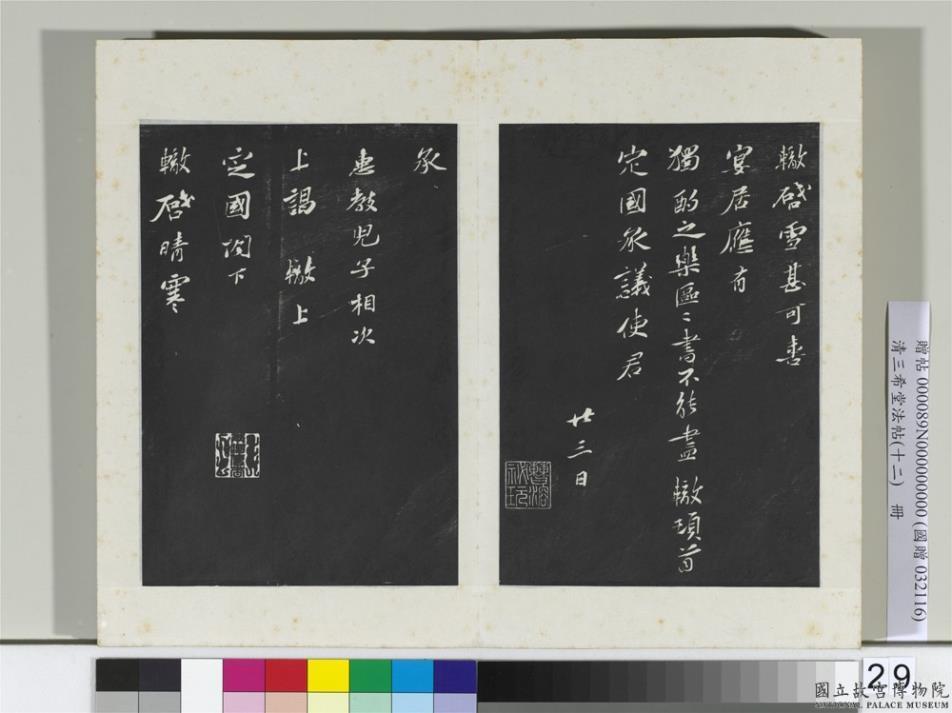 轍啓雪甚可喜
宴居應有
獨酌之樂區〻書不能盡 轍頓首
定國承議使君
廿三日
承
惠教兒子相次
上謁 轍上
定國閤下
轍啓晴寒
贈帖 000089N000000000 (國贈 032116)
清三希堂法帖(十二) 冊
29
國立故宮博物院
NATIONAL PALACE MUSEUM